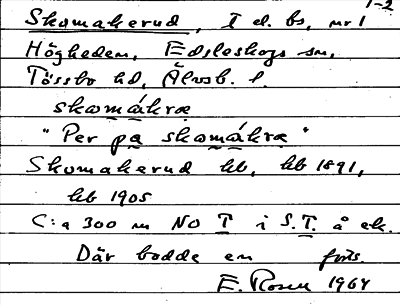 1-2
Skomakerud, I d. bs, nr 1
Högheden, Edsleskogs sn,
Tössbo hd, Älvsb. l.
skomákra
"Per pa skomákra"
Skomakerud hb, hb 1891,
hb 1905
C:a 300 m NO T i S.T. å ek.
Där bodde en förs.
E. Rosen 1964